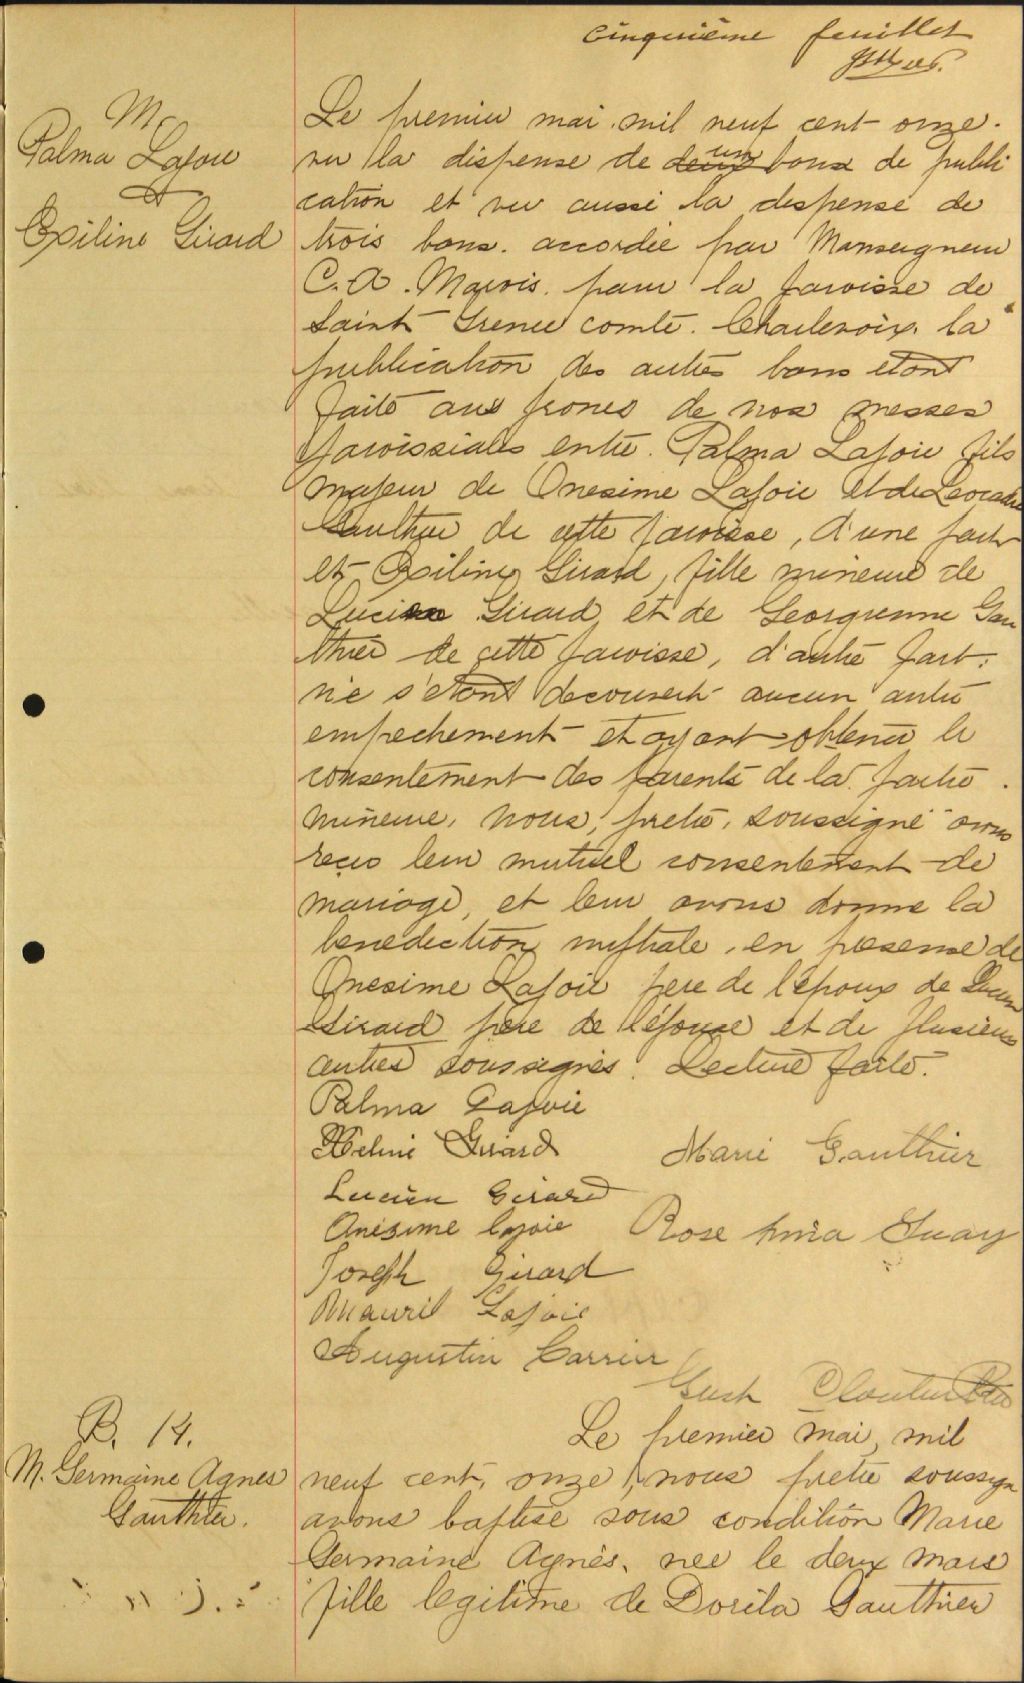 cinquième feuillet
M.
Palma Lajoie
&
Exiline Girard
Le premier mai mil neuf cent onze.
vu la dispense de deux un bans de publi
cation et vu aussi la dispense de
trois bans. accordée par Monseigneur
C. A. Marois. pour la paroisse de
Saint Irenée comté. Charlevoix. la
publication des autres bans etant
faite aux prones de nos messes
paroissiales entre. Palma Lajoie fils
majeur de Onesime Lajoie et de Leocadie
Gauthier de cette paroisse, d'une part
et Exiline Girard, fille mineure de
Lucien Girard et de Georgienne Gau
thier de cette paroisse, d'autre part.
ne s'etant decouvert aucun autre
empechement et ayant obtenu le
consentement des parents de la partie
mineure, nous, pretre, soussigné avons
reçu leur mutuel consentement de
mariage, et leur avons donne la
benediction nuptiale, en presence de
Onesime Lajoie pere de l'époux de Lucien
Girard père de l'épouse et de plusieurs
autres soussignés. Lecture faite.
Palma Lajoie
Girard Marie Gauthier
Lucien Girard
Onésime Lajoie Rose Anna Guay
Joseph Girard
Mauril Lajoie
Augustin Carrier
Cloutier Ptre
B. 14.
M. Germaine Agnes
Gauthier.
Le premier mai, mil
neuf cent, onze, nous pretre soussign
avons baptisé sous condition Marie
Germaine Agnès, nee le deux mars
fille legitime de Dorila Gauthier